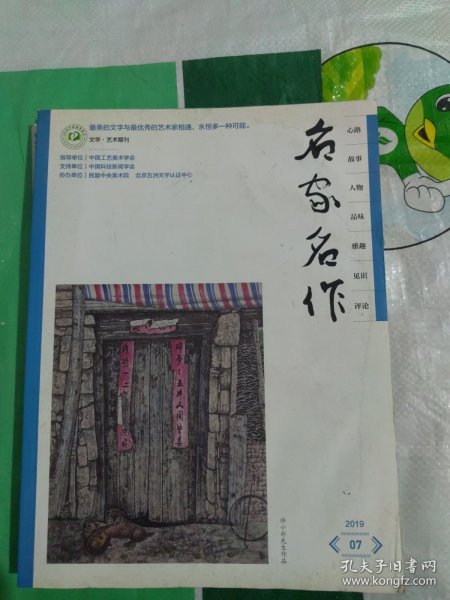 最美的文字与最优秀的艺术家相遇，永恒多一种可能。
文学·艺术期刊
指导单位｜中国工艺美术学会
支持单位｜中国科技新闻学会
协办单位｜民盟中央美术院 北京五洲天宇认证中心
名家名作
心路
故事
人物
品味
雅趣
见识
评论
许小朴先生作品
2019
07
孔夫子旧书网
www.kongfz.com